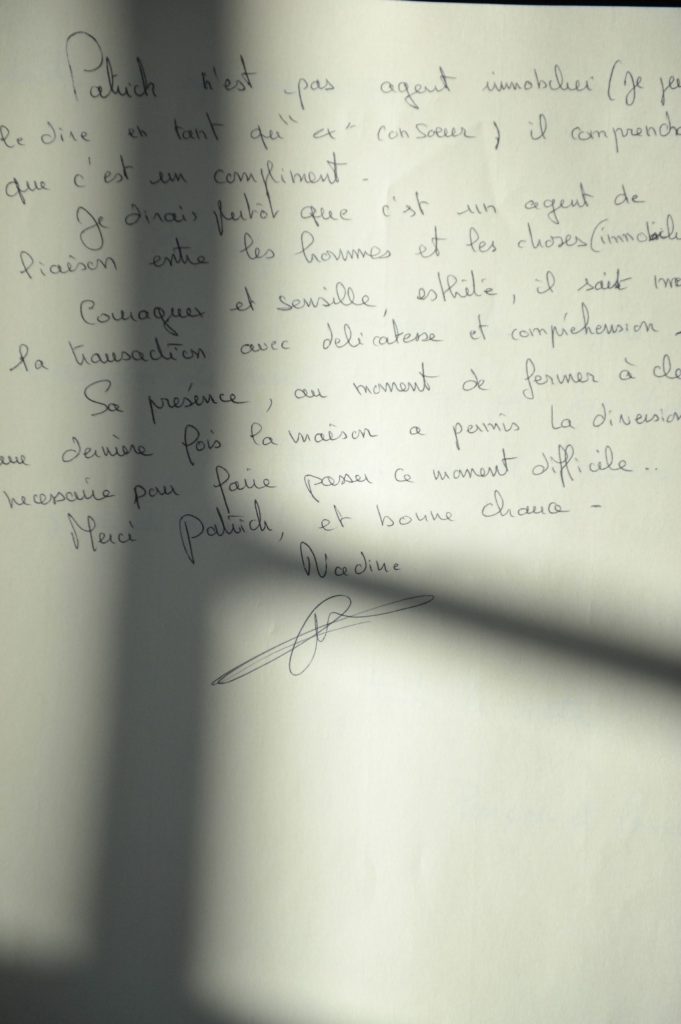 Patrick n'est pas agent immobilier (Je
le dire en tant qu'" ex " consoeur) il comprendra
que c'est un compliment -
Je dirais plutôt que c'est un agent de
liaison entre les hommes et les choses (immobili
Courageux et sensible, esthète, il sait
la transaction avec délicatesse et compréhension -
Sa présence, au moment de fermer à cle
une dernière fois la maison a permis la diversion
necessaire pour faire passer ce moment difficile ..
Merci Patrick, et bonne chance -
Nadine